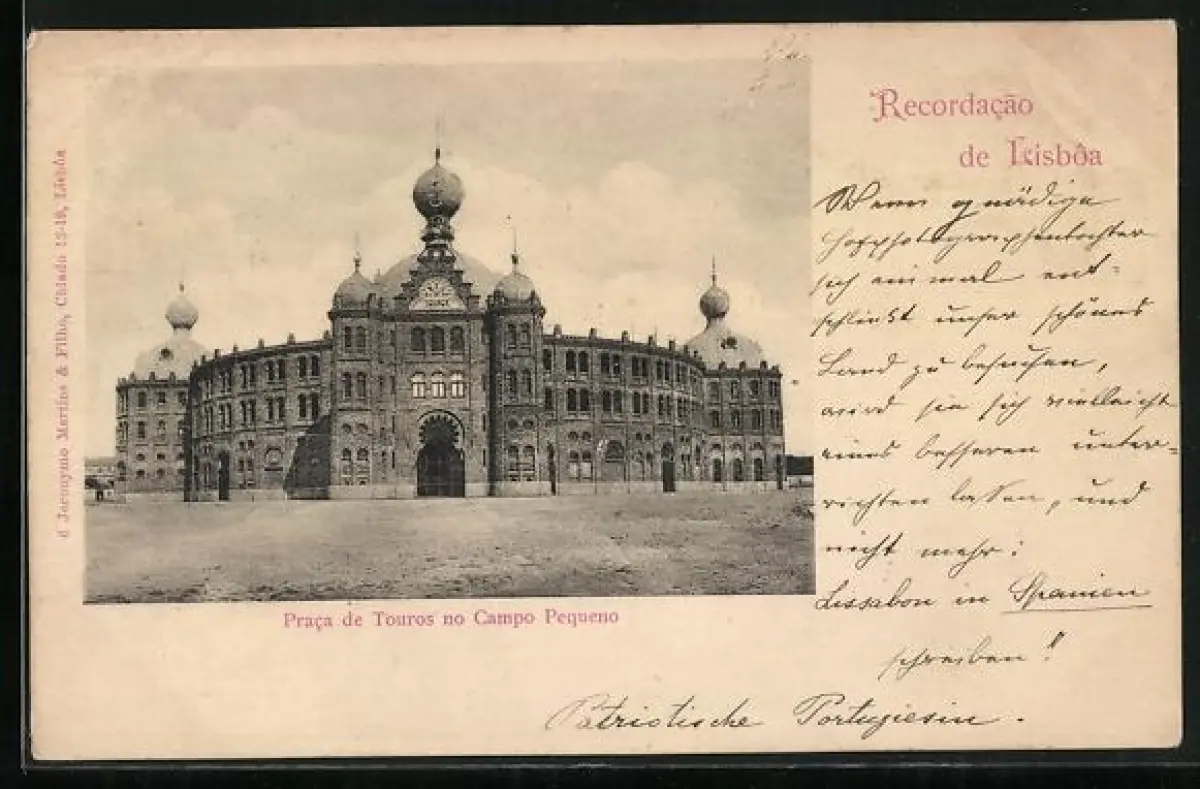 Recordação
de Lisbôa
Wenn gnädige
Hofphotographentochter
sich einmal ent-
schließt unser schönes
Land zu besuchen,
wird sie sich vielleicht
eines besseren unter-
richten lassen, und
nicht mehr:
Lissabon in Spanien
schreiben!
Patriotische Portugiesin.
Praça de Touros no Campo Pequeno
Jeronymo Martins & Filho, Chiado 13-19, Lisbôa